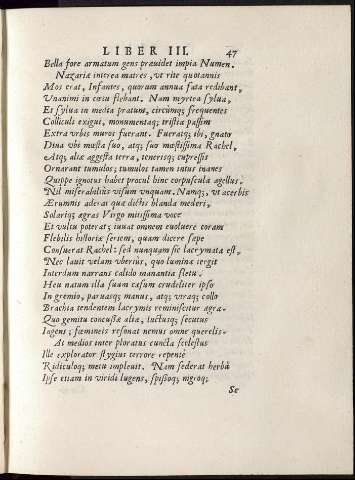 LIBER III. 47
Bella fore armatum gens prævidet impia Numen.
Nazaria interea matres, ut rite quotannis
Mos erat, Infantes, quorum annua fata redibant,
Unanimi in cœtu flebant. Nam myrtea sylua,
Et sylua in media pratum, circumq; frequentes
Colliculi exigui, monumentaq; tristia passim
Extra urbis muros fuerant. Fueratq; ibi, gnato
Dina ubi mœsta suo, atq; suo mœstissima Rachel,
Atq; aliæ aggesta terra, tenerisq; cupressis
Ornarant tumulos; tumulos tamen intus inanes
Quippe ignotus habet procul hinc corpuscula agellus.
Nil miserabilius visum unquam. Namq;, ut acerbis
Ærumnis aderat quæ dictis blanda mederi,
Solarisq; ægras Virgo mitissima voce
Et vultu poterat; iuuat omnem euoluere coram
Flebilis historiæ seriem, quam dicere sæpe
Consuerat Rachel: sed nunquam sic lacrymata est,
Nec lauit velam uberius, quo lumina tergit
Interdum narrans calido manantia fletu.
Heu natum illa suum casum crudeliter ipso
In gremio, paruasq; manus, atq; utraq; collo
Brachia tendentem lacrymis reminiscitur ægra.
Quo gemitu concussæ aliæ, luctusq; secutus
Ingens; fœmineis resonat nemus omne querelis.
At medios inter ploratus cuncta scelestus
Ille explorator stygius terrore repentè
Ridiculoq; metu impleuit. Nam sederat herbâ
Ipse etiam in viridi lugens, spissoq; nigroq;
Se